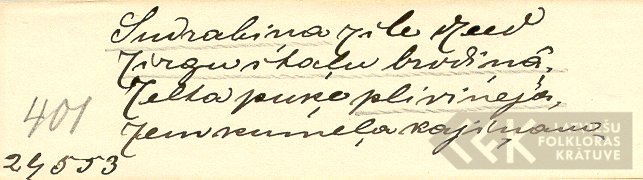 Sudrabiņa zīle dzied
Zirgu staļļu brodiņâ,
Zelta puķe plivinėja,
Zem kumeļa kajiņam.
401
24553
LATVIEŠU
FOLKLORAS
KRĀTUVE